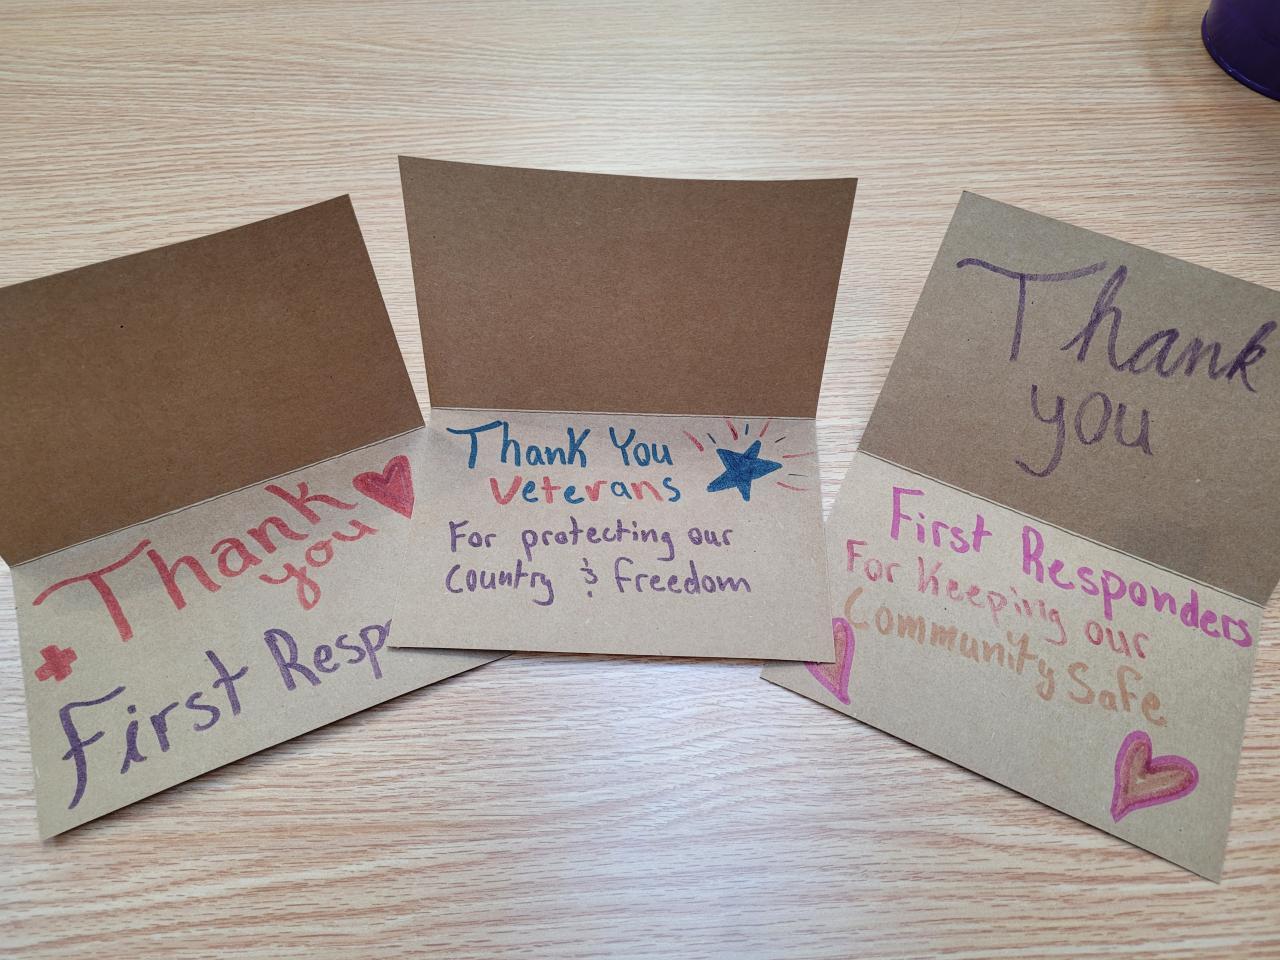 Thank
you
First Resp
Thank You
Veterans
For protecting our
Country & freedom
Thank
you
First Responders
For Keeping our
Community Safe